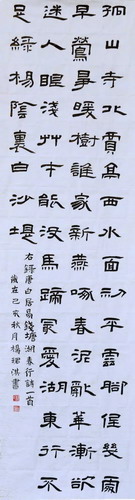 孤山寺北賈亭西水面初平雲腳低幾處
早鶯爭暖樹誰家新燕啄春泥亂花漸欲
迷人眼淺草才能沒馬蹄最愛湖東行不
足綠楊陰裏白沙堤
右錄唐白居易錢塘湖春行詩一首
歲在己亥秋月楊淇書